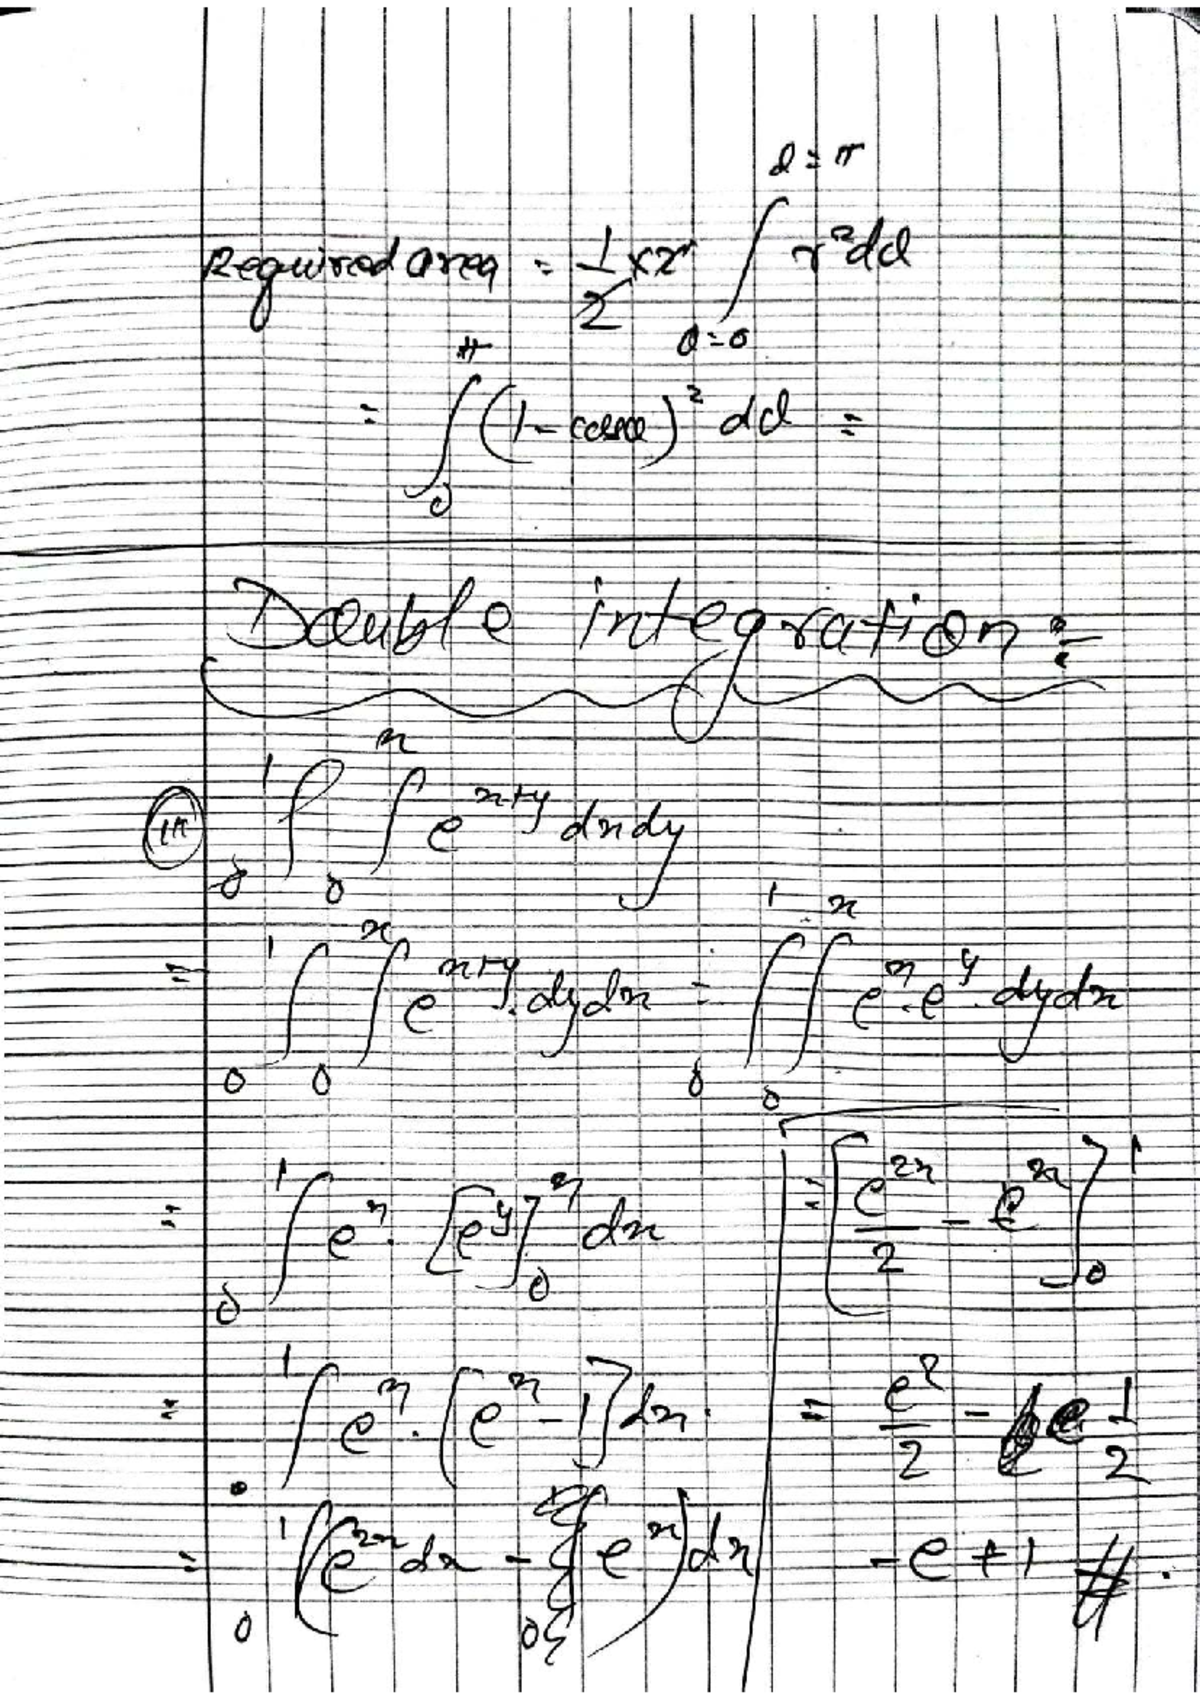 θ = π
Required area = 1/2 × 2 ∫ r² dθ
θ = 0
= ∫₀^π (1 - cosθ)² dθ =
Double integration :-
∫₀¹ ∫₀ˣ e^(x+y) dx dy
= ∫₀¹ ∫₀ˣ e^(x+y) . dy dx = ∫₀¹ ∫₀ˣ e^x . e^y . dy dx
= ∫₀¹ e^x . [e^y]₀ˣ dx
= ∫₀¹ e^x . [e^x - 1] dx .
= ∫₀¹ (e^(2x) dx - e^x) dx
= [e^(2x)/2 - e^x]₀¹
= e²/2 - 1/2
- e + 1 #.